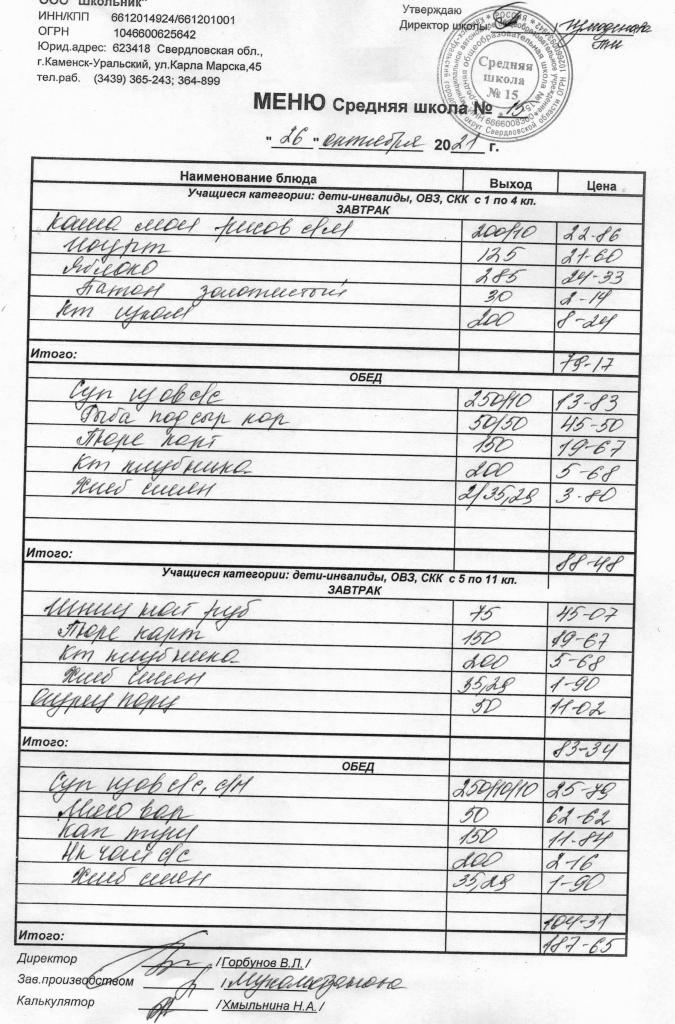 ООО "Школьник"
ИНН/КПП 6612014924/661201001
ОГРН 1046600625642
Юрид.адрес: 623418 Свердловская обл.,
г.Каменск-Уральский, ул.Карла Марска,45
тел.раб. (3439) 365-243; 364-899
Утверждаю
Директор школы
Средняя
школа
№ 15
МЕНЮ Средняя школа № 15
"26" октября 2021 г.
Наименование блюда Выход Цена
Учащиеся категории: дети-инвалиды, ОВЗ, СКК с 1 по 4 кл.
ЗАВТРАК
Каша мол рисов с/м 200/10 22-86
Йогурт 125 21-60
Яблоко 285 24-33
Батон золотистый 30 2-14
Кт 200 8-24
Итого: 79-17
ОБЕД
Суп с/с 250/10 13-83
Рыба под сыр кор 50/50 45-50
Пюре карт 150 19-67
Кт клубника 200 5-68
Хлеб смен 2/35,29 3-80
Итого: 88-48
Учащиеся категории: дети-инвалиды, ОВЗ, СКК с 5 по 11 кл.
ЗАВТРАК
Шниц нат руб 75 45-07
Пюре карт 150 19-67
Кт клубника 200 5-68
Хлеб смен 35,29 1-90
Огурец порц 30 11-02
Итого: 83-34
ОБЕД
Суп с/с, с/м 250/10/10 25-79
Мясо вар 50 62-62
Кап туш 150 11-84
Нк чай с/с 200 2-16
Хлеб смен 35,29 1-90
104-31
Итого: 187-65
Директор /Горбунов В.Л./
Зав.производством /
Калькулятор /Хмыльнина Н.А./